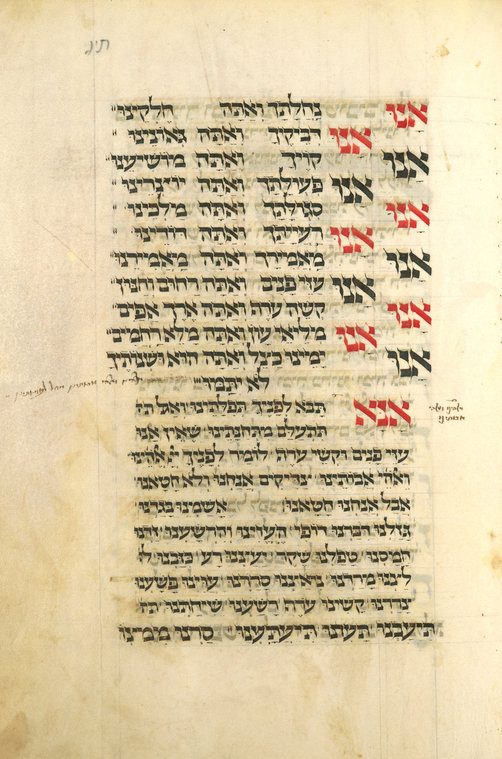 תיג
אנו נחלתך ואתה חלקינו
אנו דביקך ואתה גאונינו
אנו קויך ואתה מושיענו
אנו פעולתך ואתה יוצרינו
אנו סגולתך ואתה מלכינו
אנו רעיתך ואתה דודינו
אנו מאמירך ואתה מאמירנו
אנו עזי פנים ואתה רחום וחנון
אנו קשה ערף ואתה ארך אפים
אנו מליאי עון ואתה מלא רחמים
אנו ימינו כצל ואתה הוא ושנותיך
לא יתמו
אנא תבא לפניך תפלתינו ואל ת
תתעלם מתחנתינו שאין אנו
עזי פנים וקשי ערף לומר לפניך
ואלהי אבותינו צדיקים אנחנו ולא חטאנו
אבל אנחנו חטאנו אשמנו בגדנו
גזלנו דברנו דופי העוינו והרשענו זדנו
חמסנו טפלנו שקר יעצנו רע כזבנו ל
לצנו מרדנו ניאצנו סררנו עוינו פשענו
צררנו קשינו ערף רשענו שיחתנו ת
תיעבנו תעינו תיעתענו סרנו ממ